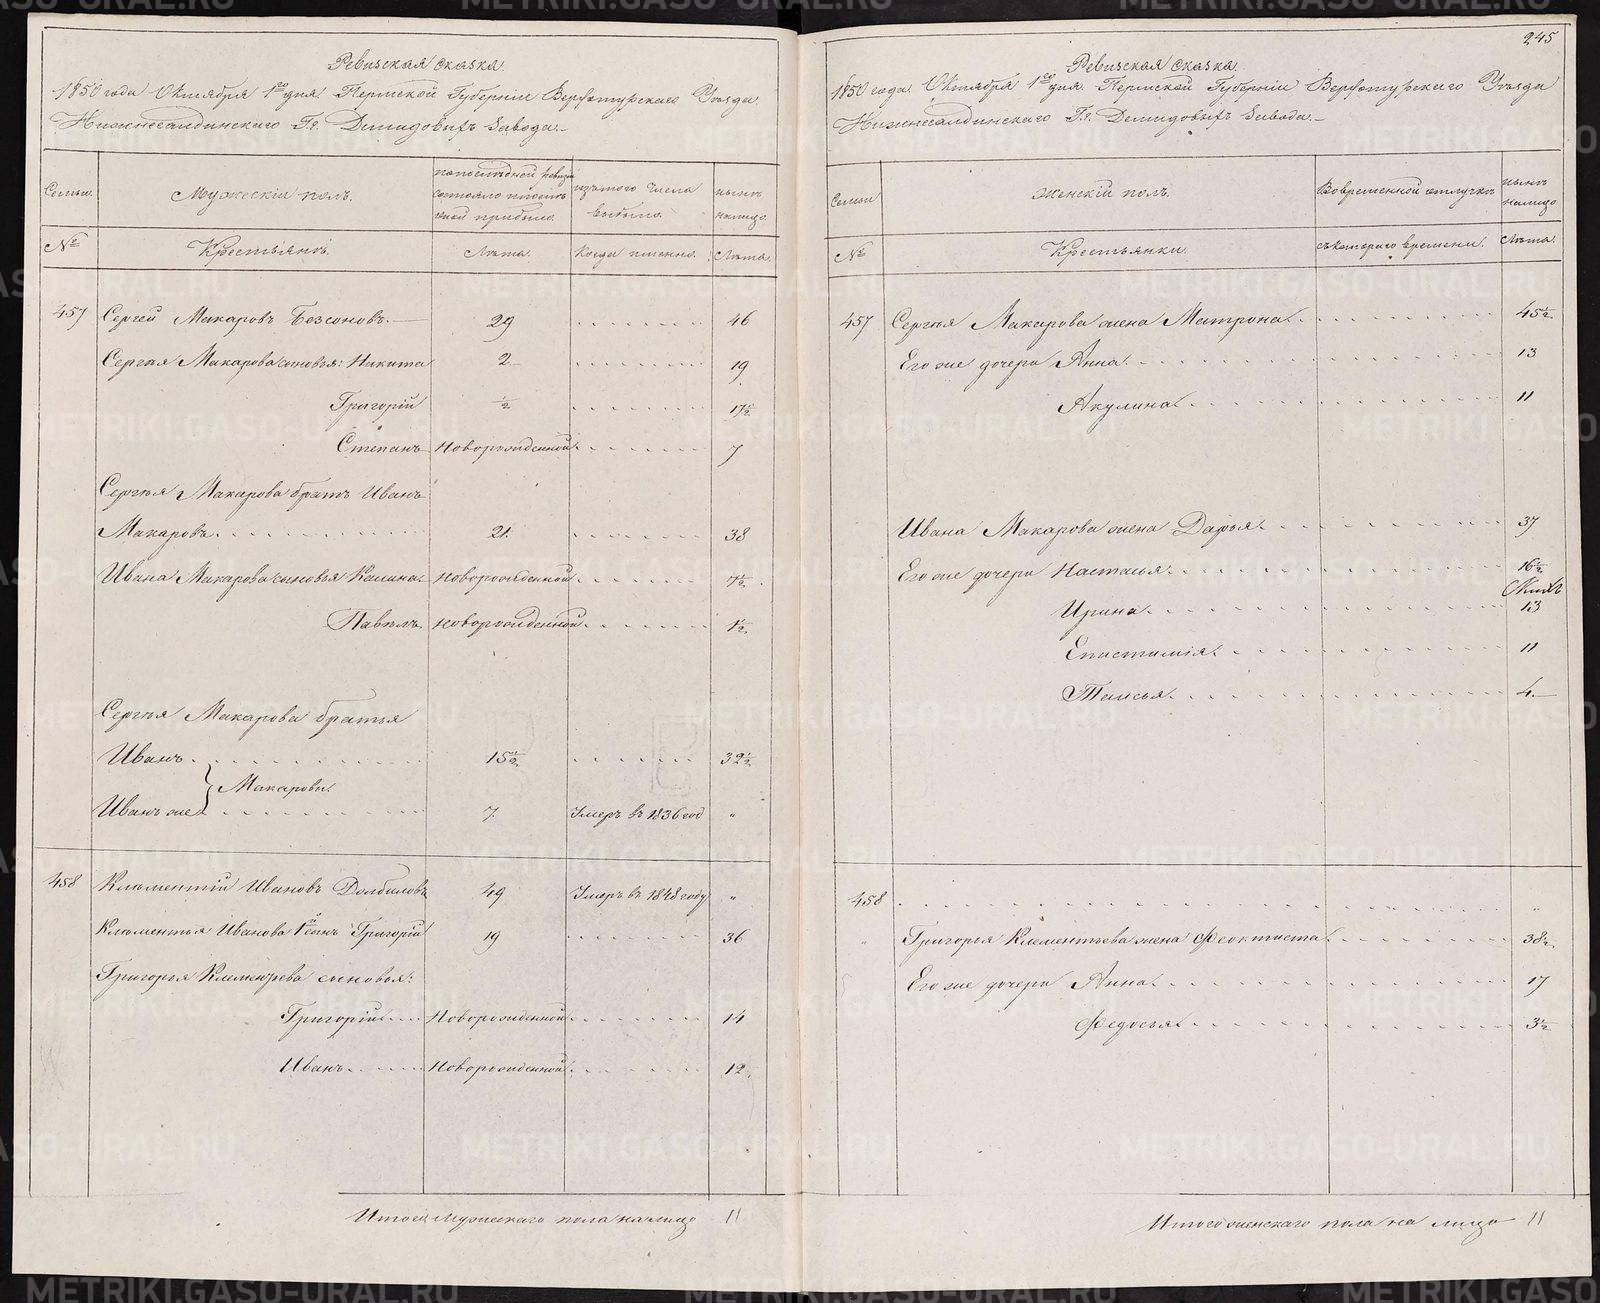 Ревизская сказка.
1850 года Октября 1го дня Пермской Губерніи Верхотурскаго Уѣзда
Нижнесалдинскаго Г.г. Демидовыхъ Завода.
Семьи.
Мужескій полъ.
по последней ревизіи состояло и после оной прибыло.
изъ того числа выбыло.
нынѣ налицо.
№
Крестьянѣ.
Лѣта.
Когда именно.
Лѣта.
457 Сергей Макаровъ Безсоновъ. 29 46
Сергѣя Макарова сыновья: Никита 2 19
Григорій ½ 17½
Степанъ Новорожденной 7
Сергѣя Макарова братъ Иванъ
Макаровъ 21. 38
Ивана Макарова сыновья Калина Новорожденной 7½
Павелъ Новорожденной 1½
Сергѣя Макарова братья
Иванъ 15½ 32½
Макаровы.
Иванъ же 7. Умеръ въ 1836 год "
458 Клементій Ивановъ Долбиловъ 49 Умеръ въ 1848 году "
Клементья Иванова 1й сынъ Григорій 19 36
Григорья Клементьева сыновья:
Григорій Новорожденной 14
Иванъ Новорожденной 12
Итого мужескаго пола на лицо 11
245
Ревизская сказка.
1850 года Октября 1го дня Пермской Губерніи Верхотурскаго Уѣзда
Нижнесалдинскаго Г.г. Демидовыхъ Завода.
Семьи
Женскій полъ.
Во временной отлучкѣ
нынѣ налицо
№
Крестьянки.
съ котораго времени.
Лѣта.
457 Сергѣя Макарова жена Матрона 45½
Его же дочери Анна 13
Акулина 11
Ивана Макарова жена Дарья 37
Его же дочери Настасья 16½
Ирина 13
Епистимія 11
Таисья 4
458 "
" Григорья Клементьева жена Феоктиста 38½
Его же дочери Анна 17
Федосья 3½
Итого женскаго пола на лицо 11
METRIKI.GASO-URAL.RU